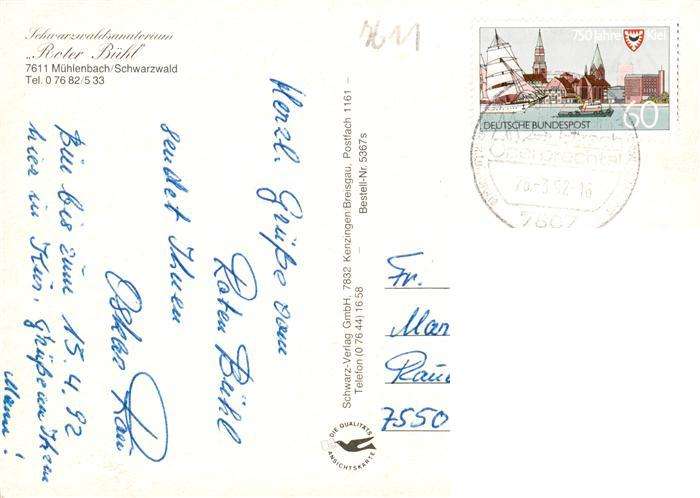 Schwarzwaldsanatorium
„Roter Bühl"
7611 Mühlenbach/Schwarzwald
Tel. 0 76 82/5 33
7611
750 Jahre Kiel
DEUTSCHE BUNDESPOST
60
Oberprechtal
7607
Herzl. Grüße vom
Roten Bühl
sendet Ihnen
Oskar
Bin bis zum 15.4.92
hier in Kur. Grüße an Ihren
Mann!
Schwarz-Verlag GmbH, 7832 Kenzingen Breisgau, Postfach 1161 –
Telefon (0 76 44) 16 58 – Bestell-Nr. 5367s
DIE QUALITÄTS
ANSICHTSKARTE
Fr.
Mar
7550